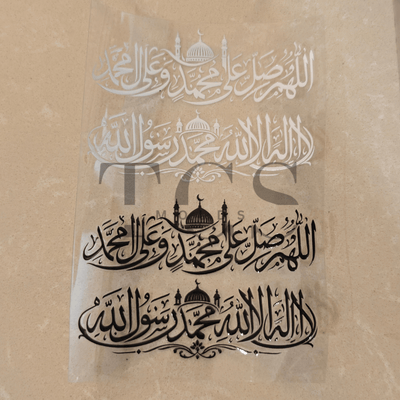 اللّٰهُمَّ صَلِّ عَلٰى مُحَمَّدٍ وَعَلٰى آلِ مُحَمَّدٍ
لَا إِلٰهَ إِلَّا اللّٰهُ مُحَمَّدٌ رَسُولُ اللّٰهِ
TCS
MODELS
اللّٰهُمَّ صَلِّ عَلٰى مُحَمَّدٍ وَعَلٰى آلِ مُحَمَّدٍ
لَا إِلٰهَ إِلَّا اللّٰهُ مُحَمَّدٌ رَسُولُ اللّٰهِ